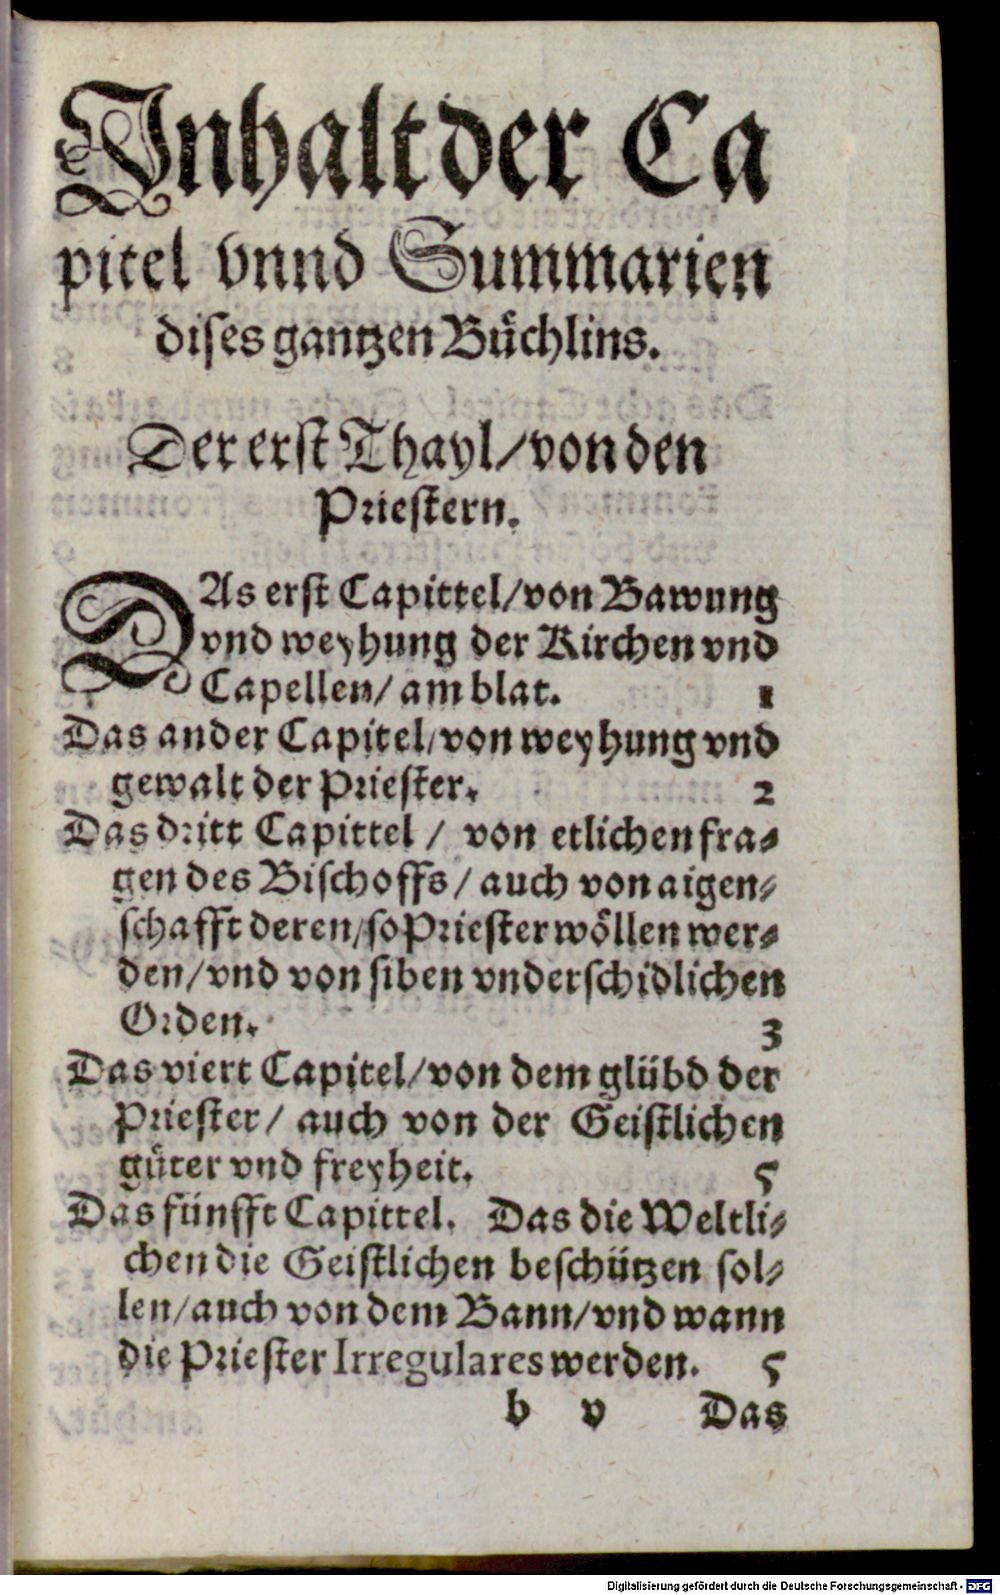 Inhalt der Ca
pitel vnnd Summarien
dises gantzen Bůchlins.
Der erst Thayl/von den
Priestern.
DAs erst Capittel/von Bawung
vnd weyhung der Kirchen vnd
Capellen/am blat. 1
Das ander Capitel/von weyhung vnd
gewalt der Priester. 2
Das dritt Capittel / von etlichen fra⸗
gen des Bischoffs/auch von aigen⸗
schafft deren/so Priester wöllen wer⸗
den/vnd von siben vnderschidlichen
Orden. 3
Das viert Capitel/von dem glübd der
Priester/ auch von der Geistlichen
gůter vnd freyheit. 5
Das fünfft Capittel. Das die Weltli⸗
chen die Geistlichen beschützen sol⸗
len/auch von dem Bann/vnd wann
die Priester Irregulares werden. 5
b v Das
Digitalisierung gefördert durch die Deutsche Forschungsgemeinschaft - DFG